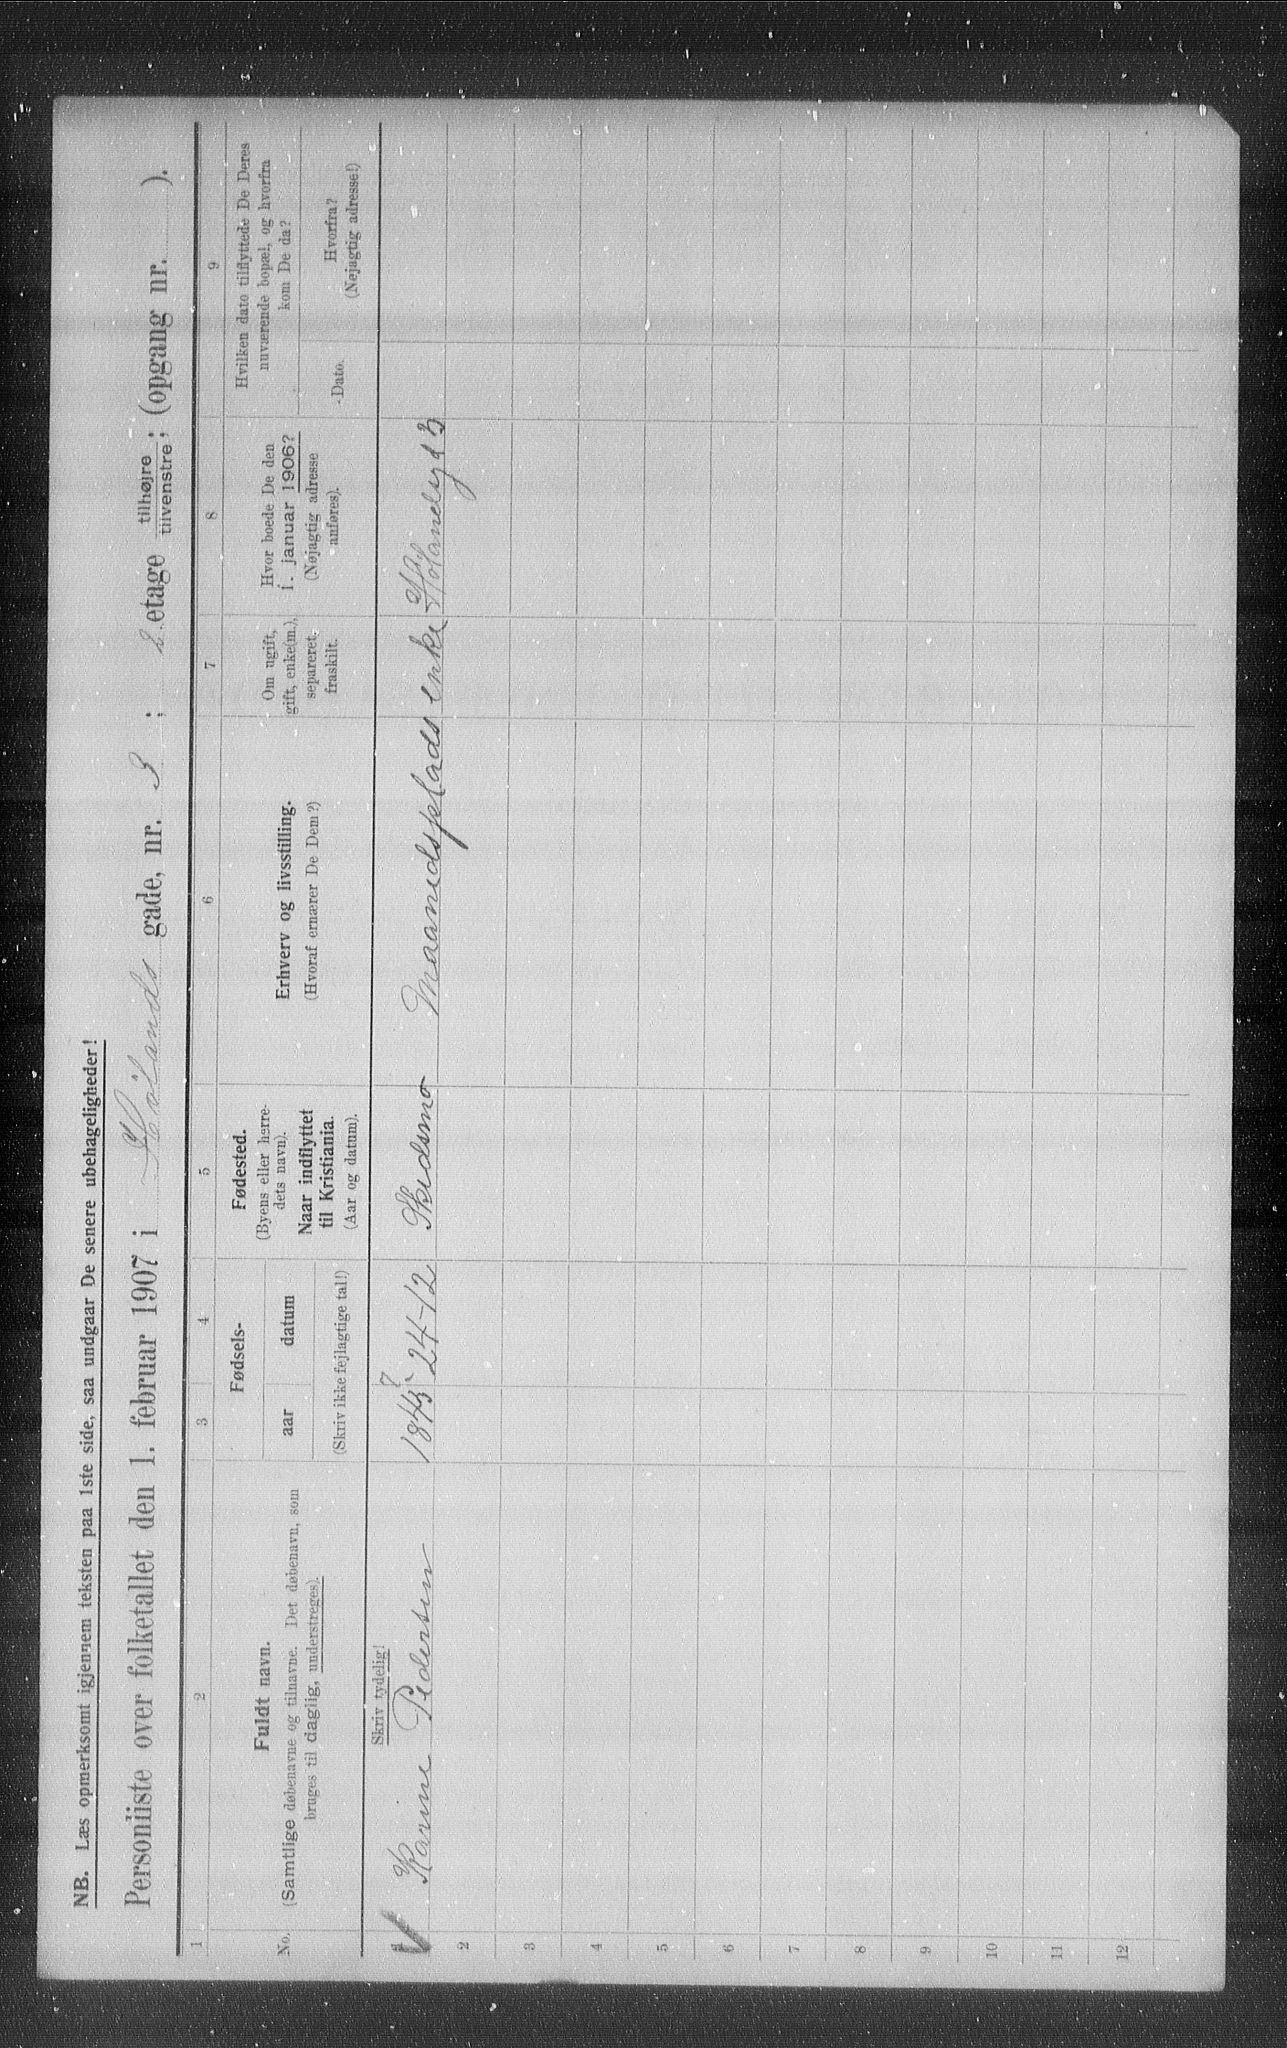 NB. Læs opmerksomt igjennem teksten paa 1ste side, saa undgaar De senere ubehageligheder!
Personliste over folketallet den 1. februar 1907 i Hölands gade, nr. 3 ; 2. etage tilhøjre/tilvenstre; (opgang nr. ).
1 2 3 4 5 6 7 8 9
No.
Fuldt navn.
(Samtlige døbenavne og tilnavne. Det døbenavn, som
bruges til daglig, understreges).
Fødsels-
aar datum
(Skriv ikke fejlagtige tal!)
Fødested.
(Byens eller herre-
dets navn).
Naar indflyttet
til Kristiania.
(Aar og datum).
Erhverv og livsstilling.
(Hvoraf ernærer De Dem?)
Om ugift,
gift, enke(m.),
separeret,
fraskilt.
Hvor boede De den
1. januar 1906?
(Nøjagtig adresse
anføres).
Hvilken dato tilflyttede De Deres
nuværende bopæl, og hvorfra
kom De da?
Dato.
Hvorfra?
(Nøjagtig adresse!)
Skriv tydelig!
1 Karine Pedersen 1845 ? 24-12 Skidsmo Maanedsplads enke Hölandsgd 3
2
3
4
5
6
7
8
9
10
11
12